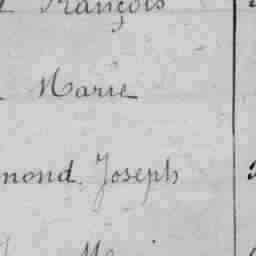 François
Marie
mond Joseph